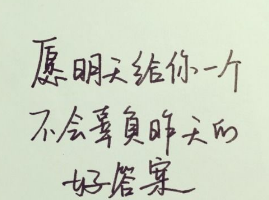 愿明天给你一个
不会辜負昨天的
好答案